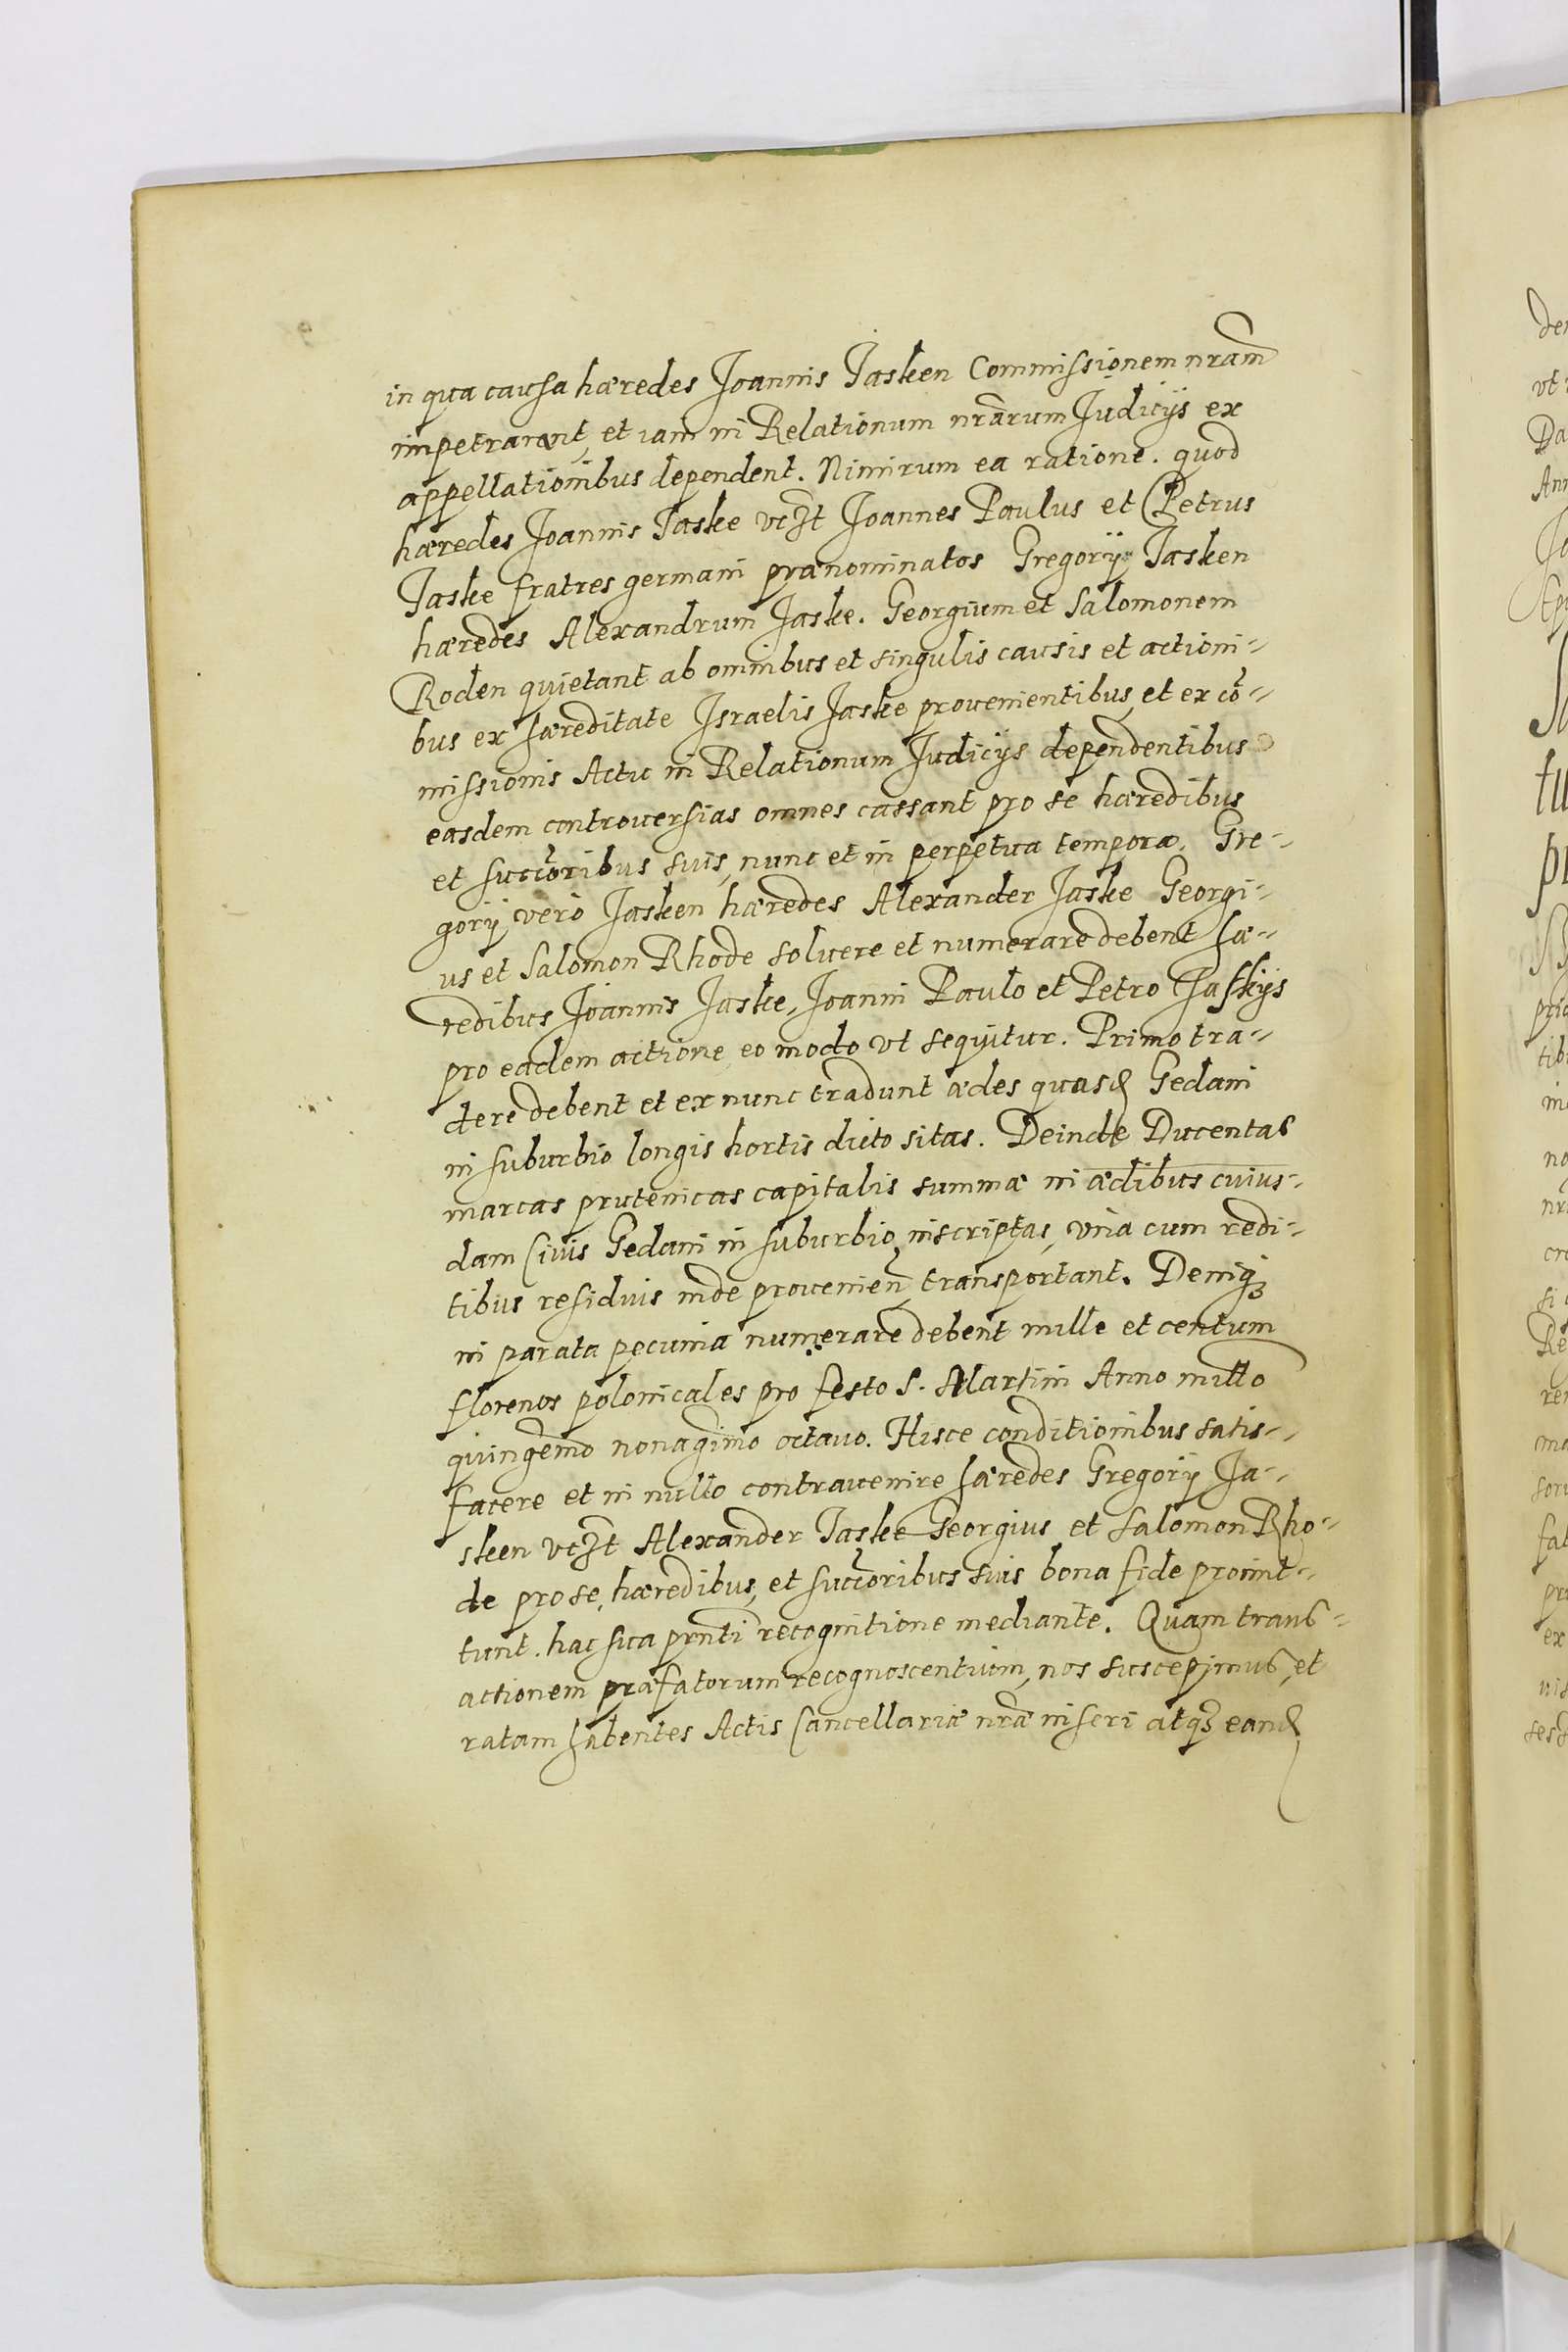 in qua causa hæredes Joannis Jasken Commissionem nr̃am
impetrarant, et iam in Relationum nr̃arum Judicijs ex
appellationibus dependent. Nimirum ea ratione. quod
hæredes Joannis Jaske vczt Joannes Paulus et Petrus
Jaske fratres germani prænominatos Gregorij Jasken
hæredes Alexandrum Jaske. Georgium et Salomonem
Roden quietant ab omnibus et singulis causis et actioni-
bus ex hæreditate Israelis Jaske prouenientibus, et ex cõ-
missionis Actu in Relationum Judicijs dependentibus
easdem controuersias omnes cassant pro se hæredibus
et succoribus suis, nunc et in perpetua tempora. Gre-
gorij vero Jasken hæredes Alexander Jaske Georgi-
us et Salomon Rhode soluere et numerare debent hæ-
redibus Joannis Jaske, Joanni Paulo et Petro Jaskijs
pro eadem actione eo modo vt sequitur. Primo tra-
dere debent et ex nunc tradunt ædes quasd Gedani
in suburbio longis hortis dicto sitas. Deinde Ducentas
marcas prutenicas capitalis summæ in ædibus cuius-
dam Ciuis Gedani in suburbio, inscriptas, vna cum redi-
tibus residuis inde prouenien transportant. Deniq
in parata pecunia numerare debent mille et centum
florenos polonicales pro festo S. Martini Anno millo
quingemo nonagimo octauo. Hisce conditionibus satis-
facere et in nullo contrauenire hæredes Gregorij Ja-
sken vczt Alexander Jaske Georgius et Salomon Rho-
de pro se, hæredibus, et succoribus suis bona fide promit-
tunt. hac sua prnti recognitione mediante. Quam trans-
actionem præfatorum recognoscentium, nos suscepimus, et
ratam habentes Actis Cancellariæ nr̃æ inseri atq eand